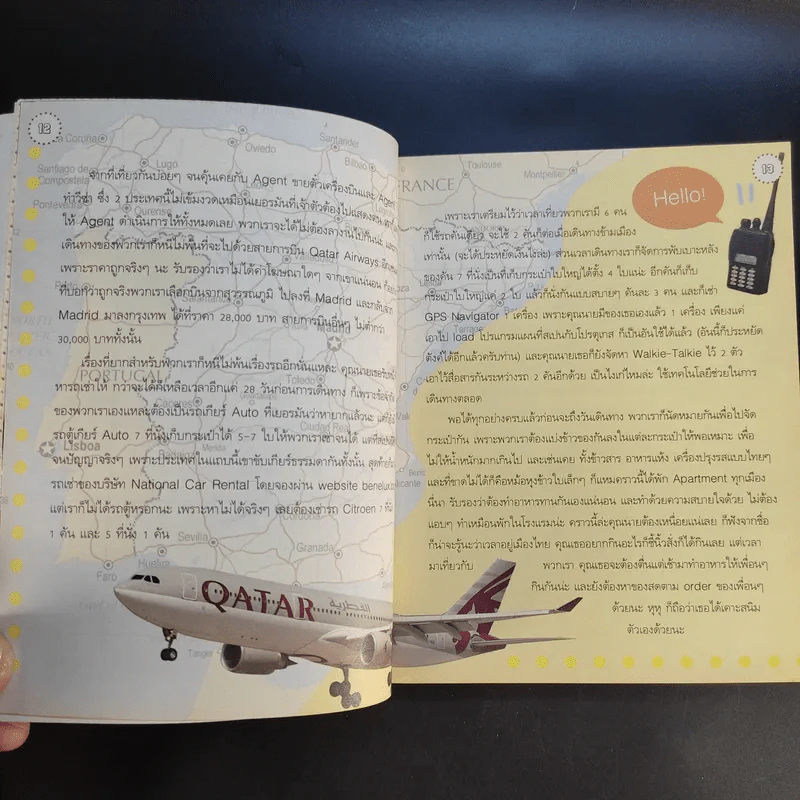 12
จากที่เที่ยวกันบ่อยๆ จนคุ้นเคยกับ Agent ขายตั๋วเครื่องบินและ Agent
ทำวีซ่า ซึ่ง 2 ประเทศนี้ไม่เข้มงวดเหมือนเยอรมันที่เจ้าตัวต้องไปแสดงตน
ให้ Agent ดำเนินการให้ทั้งหมดเลย พวกเราจะได้ไม่ต้องลางานไปกันนะ
เดินทางของพวกเราก็หนีไม่พ้นที่จะไปด้วยสายการบิน Qatar Airways อีก
เพราะราคาถูกจริงๆ นะ รับรองว่าเราไม่ได้ค่าโฆษณาใดๆ จากเขาแน่นอน
ที่บอกว่าถูกจริงพวกเราเลือกบินจากสุวรรณภูมิ ไปลงที่ Madrid และกลับจาก
Madrid มาลงกรุงเทพ ได้ที่ราคา 28,000 บาท สายการบินอื่นๆ ไม่ต่ำกว่า
30,000 บาททั้งนั้น
เรื่องที่ยากสำหรับพวกเราก็หนีไม่พ้นเรื่องรถอีกนั่นแหละ คุณนายเธอ
หารถเช่าให้ กว่าจะได้ก็เหลือเวลาอีกแค่ 28 วันก่อนการเดินทาง ก็เพราะ
ของพวกเราเองแหละต้องเป็นรถเกียร์ Auto ที่เยอรมันว่าหายากแล้วนะ
รถตู้เกียร์ Auto 7 ที่นั่งเก็บกระเป๋าได้ 5-7 ใบให้พวกเราเช่าจนได้
จนปัญญาจริงๆ เพราะประเทศในแถบนี้เขาขับเกียร์ธรรมดากันทั้งนั้น
รถเช่าของบริษัท National Car Rental โดยจองผ่าน website
แต่เราก็ไม่ได้รถตู้หรอกนะ เพราะหาไม่ได้จริงๆ เลยต้องเช่ารถ Citroen 7 ที่นั่ง
1 คัน และ 5 ที่นั่ง 1 คัน
Santander
Oviedo
Lugo
Bilbao
Santiago de
Compostela
Pontevedra
Ourense
PORTUGAL
Madrid
Toledo
Caceres
Ciudad Real
Lisboa
Cordoba
Sevilla
Huelva
Granada
Faro
Tanger
QATAR
القطرية
13
Hello!
Toulouse
Montpellier
FRANCE
เพราะเราเตรียมไว้ว่าเวลาเที่ยวพวกเรามี 6 คน
ก็ใช้รถคันเดียว จะใช้ 2 คันก็ต่อเมื่อเดินทางข้ามเมือง
เท่านั้น (จะได้ประหยัดเงินไงล่ะ) ส่วนเวลาเดินทางเราก็จัดการพับเบาะหลัง
ของคัน 7 ที่นั่งเป็นที่เก็บกระเป๋าใบใหญ่ได้ตั้ง 4 ใบแน่ะ อีกคันก็เก็บ
กระเป๋าใบใหญ่แค่ 2 ใบ แล้วก็นั่งกันแบบสบายๆ คันละ 3 คน และก็เช่า
GPS Navigator 1 เครื่อง เพราะคุณนายมีของเธอเองแล้ว 1 เครื่อง เพียงแค่
เอาไป load โปรแกรมแผนที่สเปนกับโปรตุเกส ก็เป็นอันใช้ได้แล้ว (อันนี้ก็ประหยัด
ตังค์ได้อีกแล้วครับท่าน) และคุณนายเธอก็ยังจัดหา Walkie-Talkie ไว้ 2 ตัว
เอาไว้สื่อสารกันระหว่างรถ 2 คันอีกด้วย เป็นไงไหมล่ะ ใช้เทคโนโลยีช่วยในการ
เดินทางตลอด
พอได้ทุกอย่างครบแล้วก่อนจะถึงวันเดินทาง พวกเราก็นัดหมายกันเพื่อไปจัด
กระเป๋ากัน เพราะพวกเราต้องแบ่งข้าวของกันลงในแต่ละกระเป๋าให้พอเหมาะ เพื่อ
ไม่ให้น้ำหนักมากเกินไป และเช่นเคย ทั้งข้าวสาร อาหารแห้ง เครื่องปรุงรสแบบไทยๆ
และที่ขาดไม่ได้ก็คือหม้อหุงข้าวใบเล็กๆ ก็แหมคราวนี้ได้พัก Apartment ทุกเมือง
นี่นา รับรองว่าต้องทำอาหารทานกันเองแน่นอน และทำด้วยความสบายใจด้วย ไม่ต้อง
แอบๆ ทำเหมือนพักในโรงแรมน่ะ คราวนี้ล่ะคุณนายต้องเหนื่อยแน่เลย ก็ฟังจากชื่อ
ก็น่าจะรู้นะว่าเวลาอยู่เมืองไทย คุณเธออยากกินอะไรก็ชี้นิ้วสั่งก็ได้กินเลย แต่เวลา
มาเที่ยวกับ พวกเรา คุณเธอจะต้องตื่นแต่เช้ามาทำอาหารให้เพื่อนๆ
กินกันน่ะ และยังต้องหาของสดตาม order ของเพื่อนๆ
ด้วยนะ หุหุ ก็ถือว่าเธอได้เคาะสนิม
ตัวเองด้วยนะ